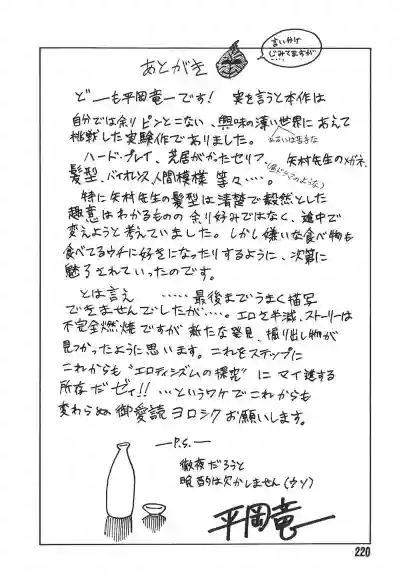 あとがき
言いわけ
じみてますが
どーも平岡竜一です! 実を言うと本作は
自分では余りピンとこない、興味の薄い世界にあえて
あるいは苦手な
挑戦した実験作でありました。
ハード・プレイ、芝居がかったセリフ、矢村先生のメガネ、
髪型、バイオレンス、人間模様 等々‥‥。
特に矢村先生の髪型は清楚で毅然とした
趣意はわかるものの 余り好みではなく、途中で
変えようと考えていました。しかし嫌いな食べ物も
食べてるウチに好きになったりするように、次第に
魅了されていったのです。
とは言え ‥‥‥最後までうまく描写
できませんでしたが‥‥。エロも半減、ストーリーは
不完全燃焼ですが 新たな発見、掘り出し物が
見つかったように思います。これをステップに
これからも“エロティシズムの探究”に マイ進する
所存だゼィ!! …というワケでこれからも
変わらぬ御愛読ヨロシクお願いします。
—P.S.—
徹夜だろうと
晩酌は欠かしません(ウソ)
平岡竜一
220